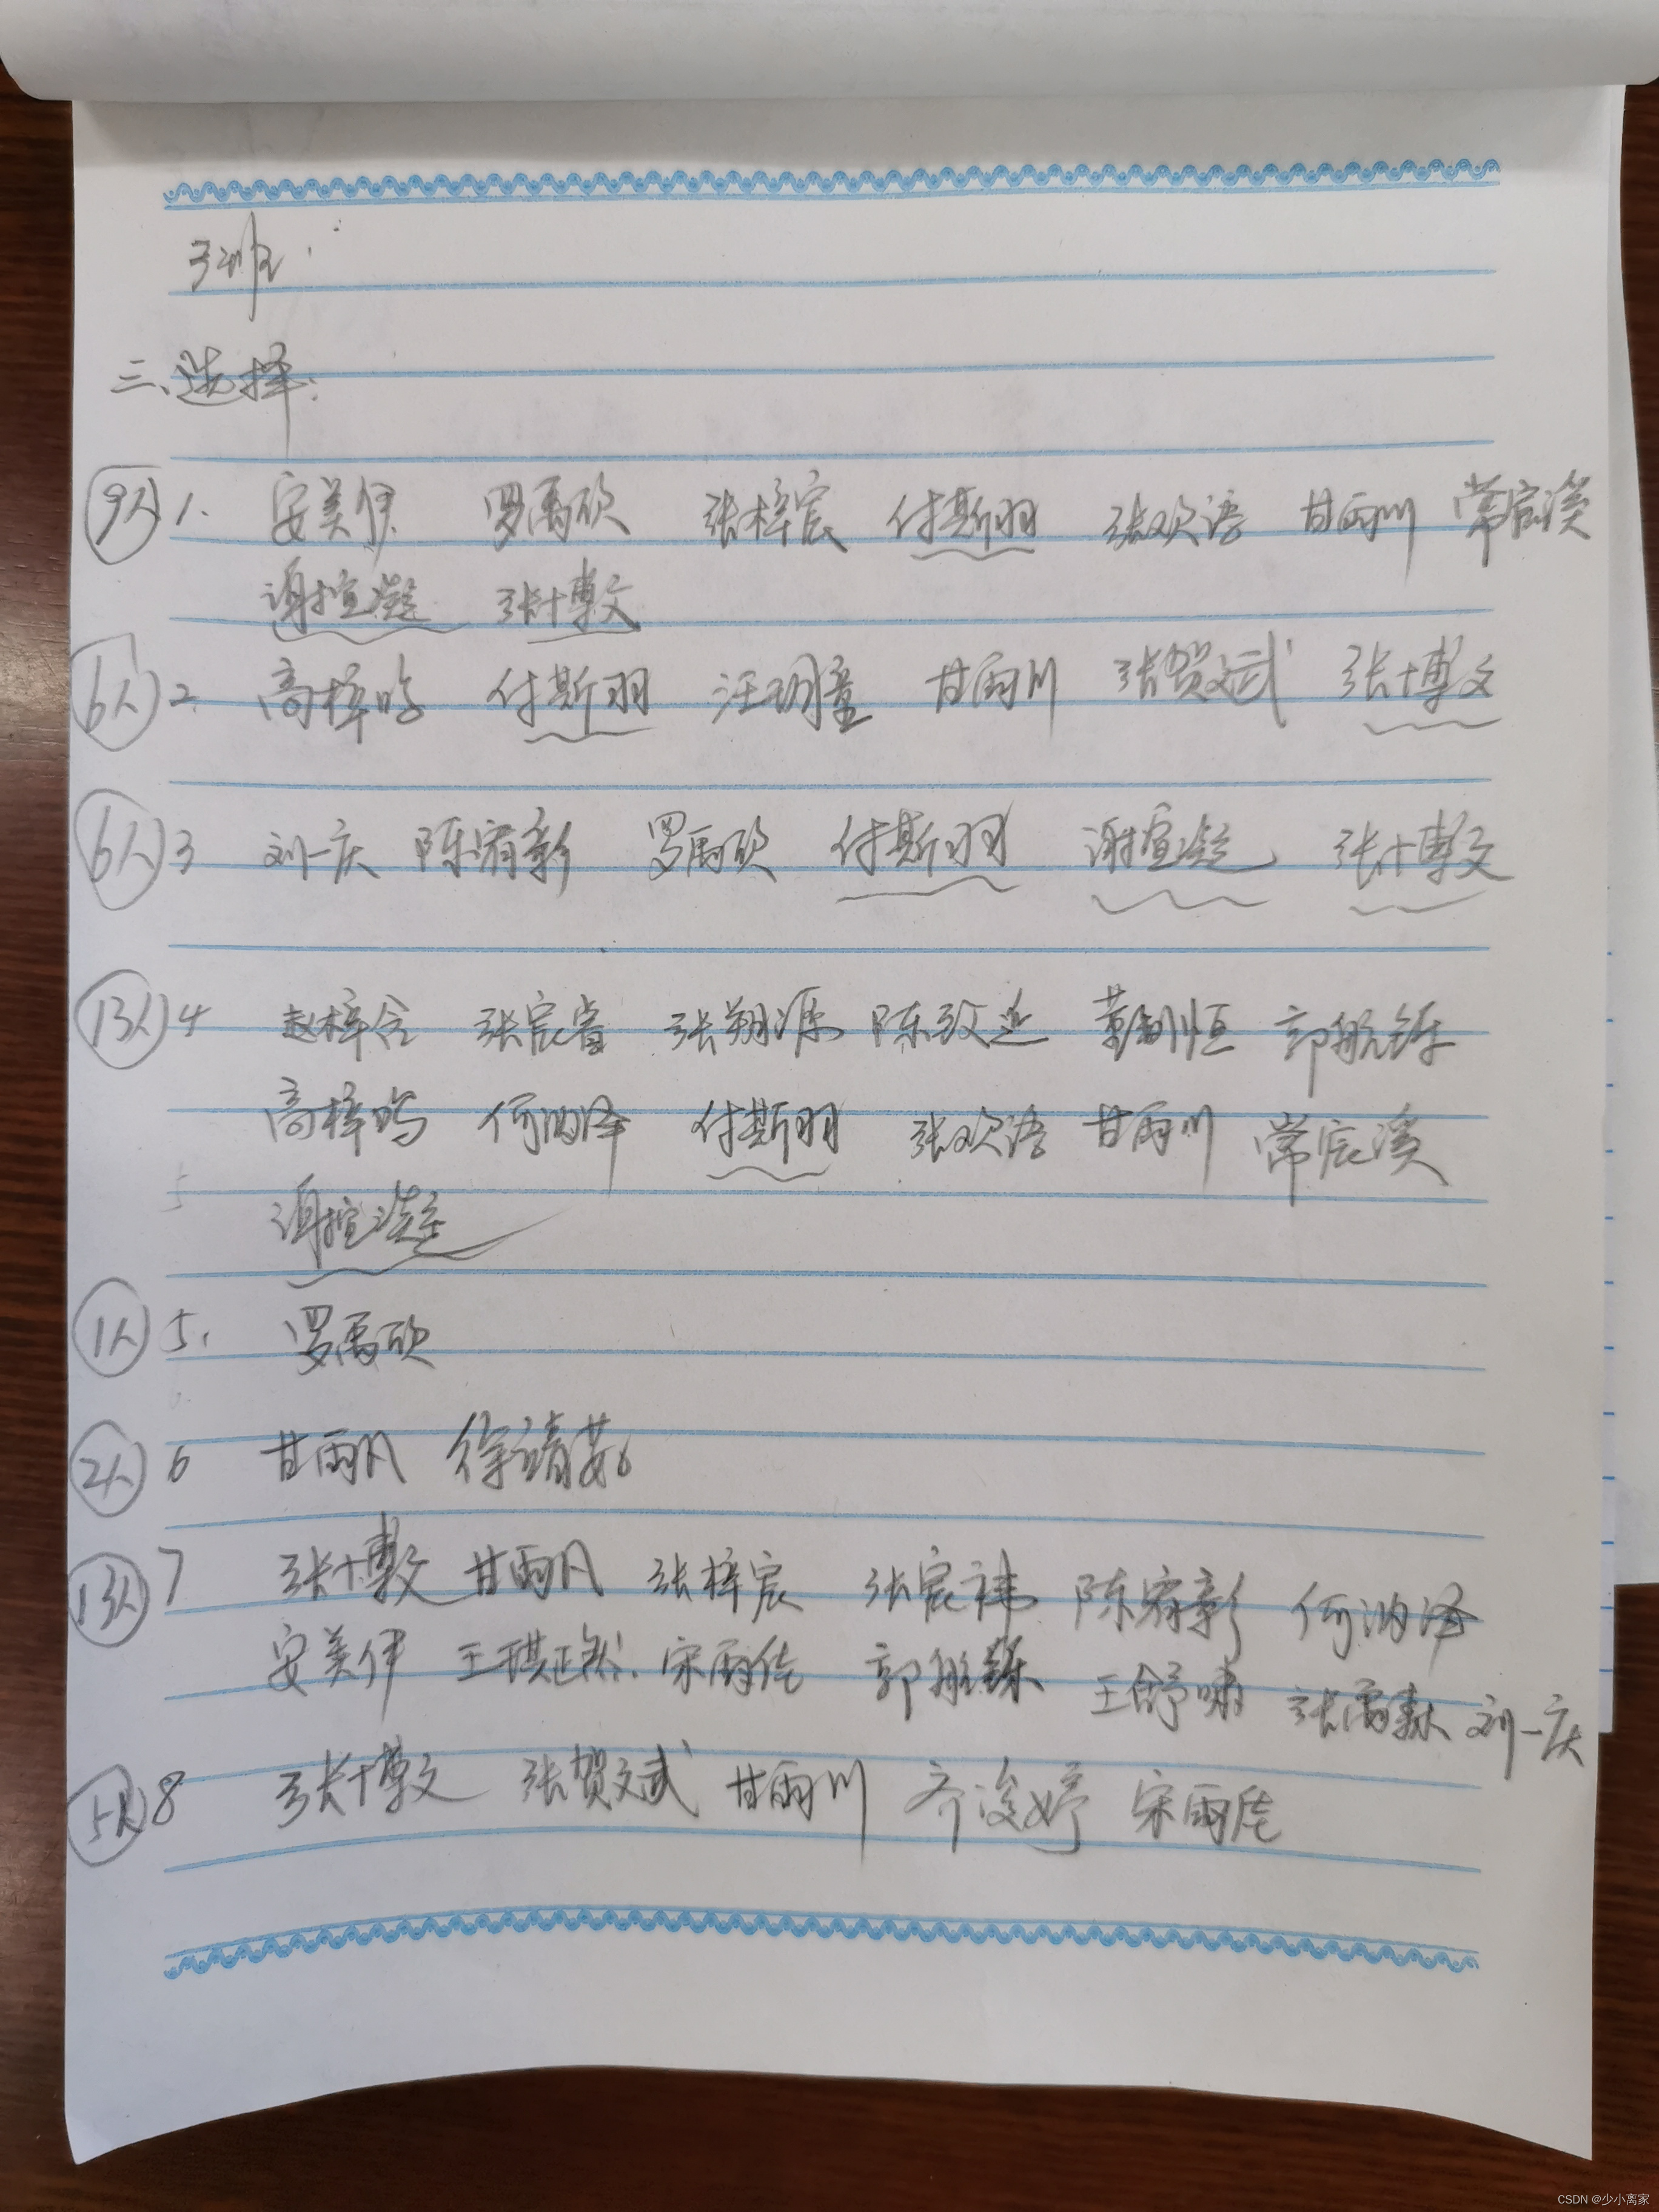 3班:
三、选择:
9人 1. 安美伊 罗禹硕 张梓宸 付斯羽 张欢语 甘雨川 常宸溪
谢萱凝 张博文
6人 2 高梓鸣 付斯羽 汪玥童 甘雨川 张贺斌 张博文
6人 3 刘一庆 陈宥彰 罗禹硕 付斯羽 谢萱凝 张博文
13人 4 赵梓含 张宸睿 张翔源 陈致延 恒 郭航铄
高梓鸣 何沁泽 付斯羽 张欢语 甘雨川 常宸溪
5
谢萱凝
1人 5. 罗禹硕
2人 6 甘雨凡 徐靖茹
13人 7 张博文 甘雨凡 张梓宸 张宸祎 陈宥彰 何沁泽
安美伊 王琪 宋雨佳 郭航铄 王舒啸 张雨森 刘一庆
5人 8 张博文 张贺斌 甘雨川 齐浚婷 宋雨佳
CSDN @少小离家